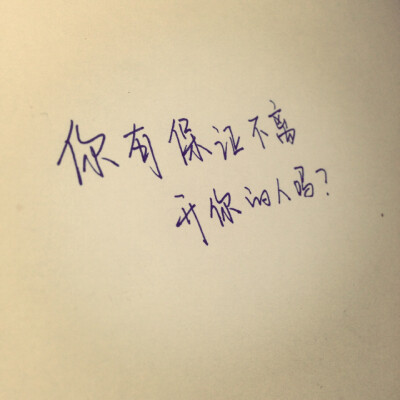 你有保证不离
开你的人吗?